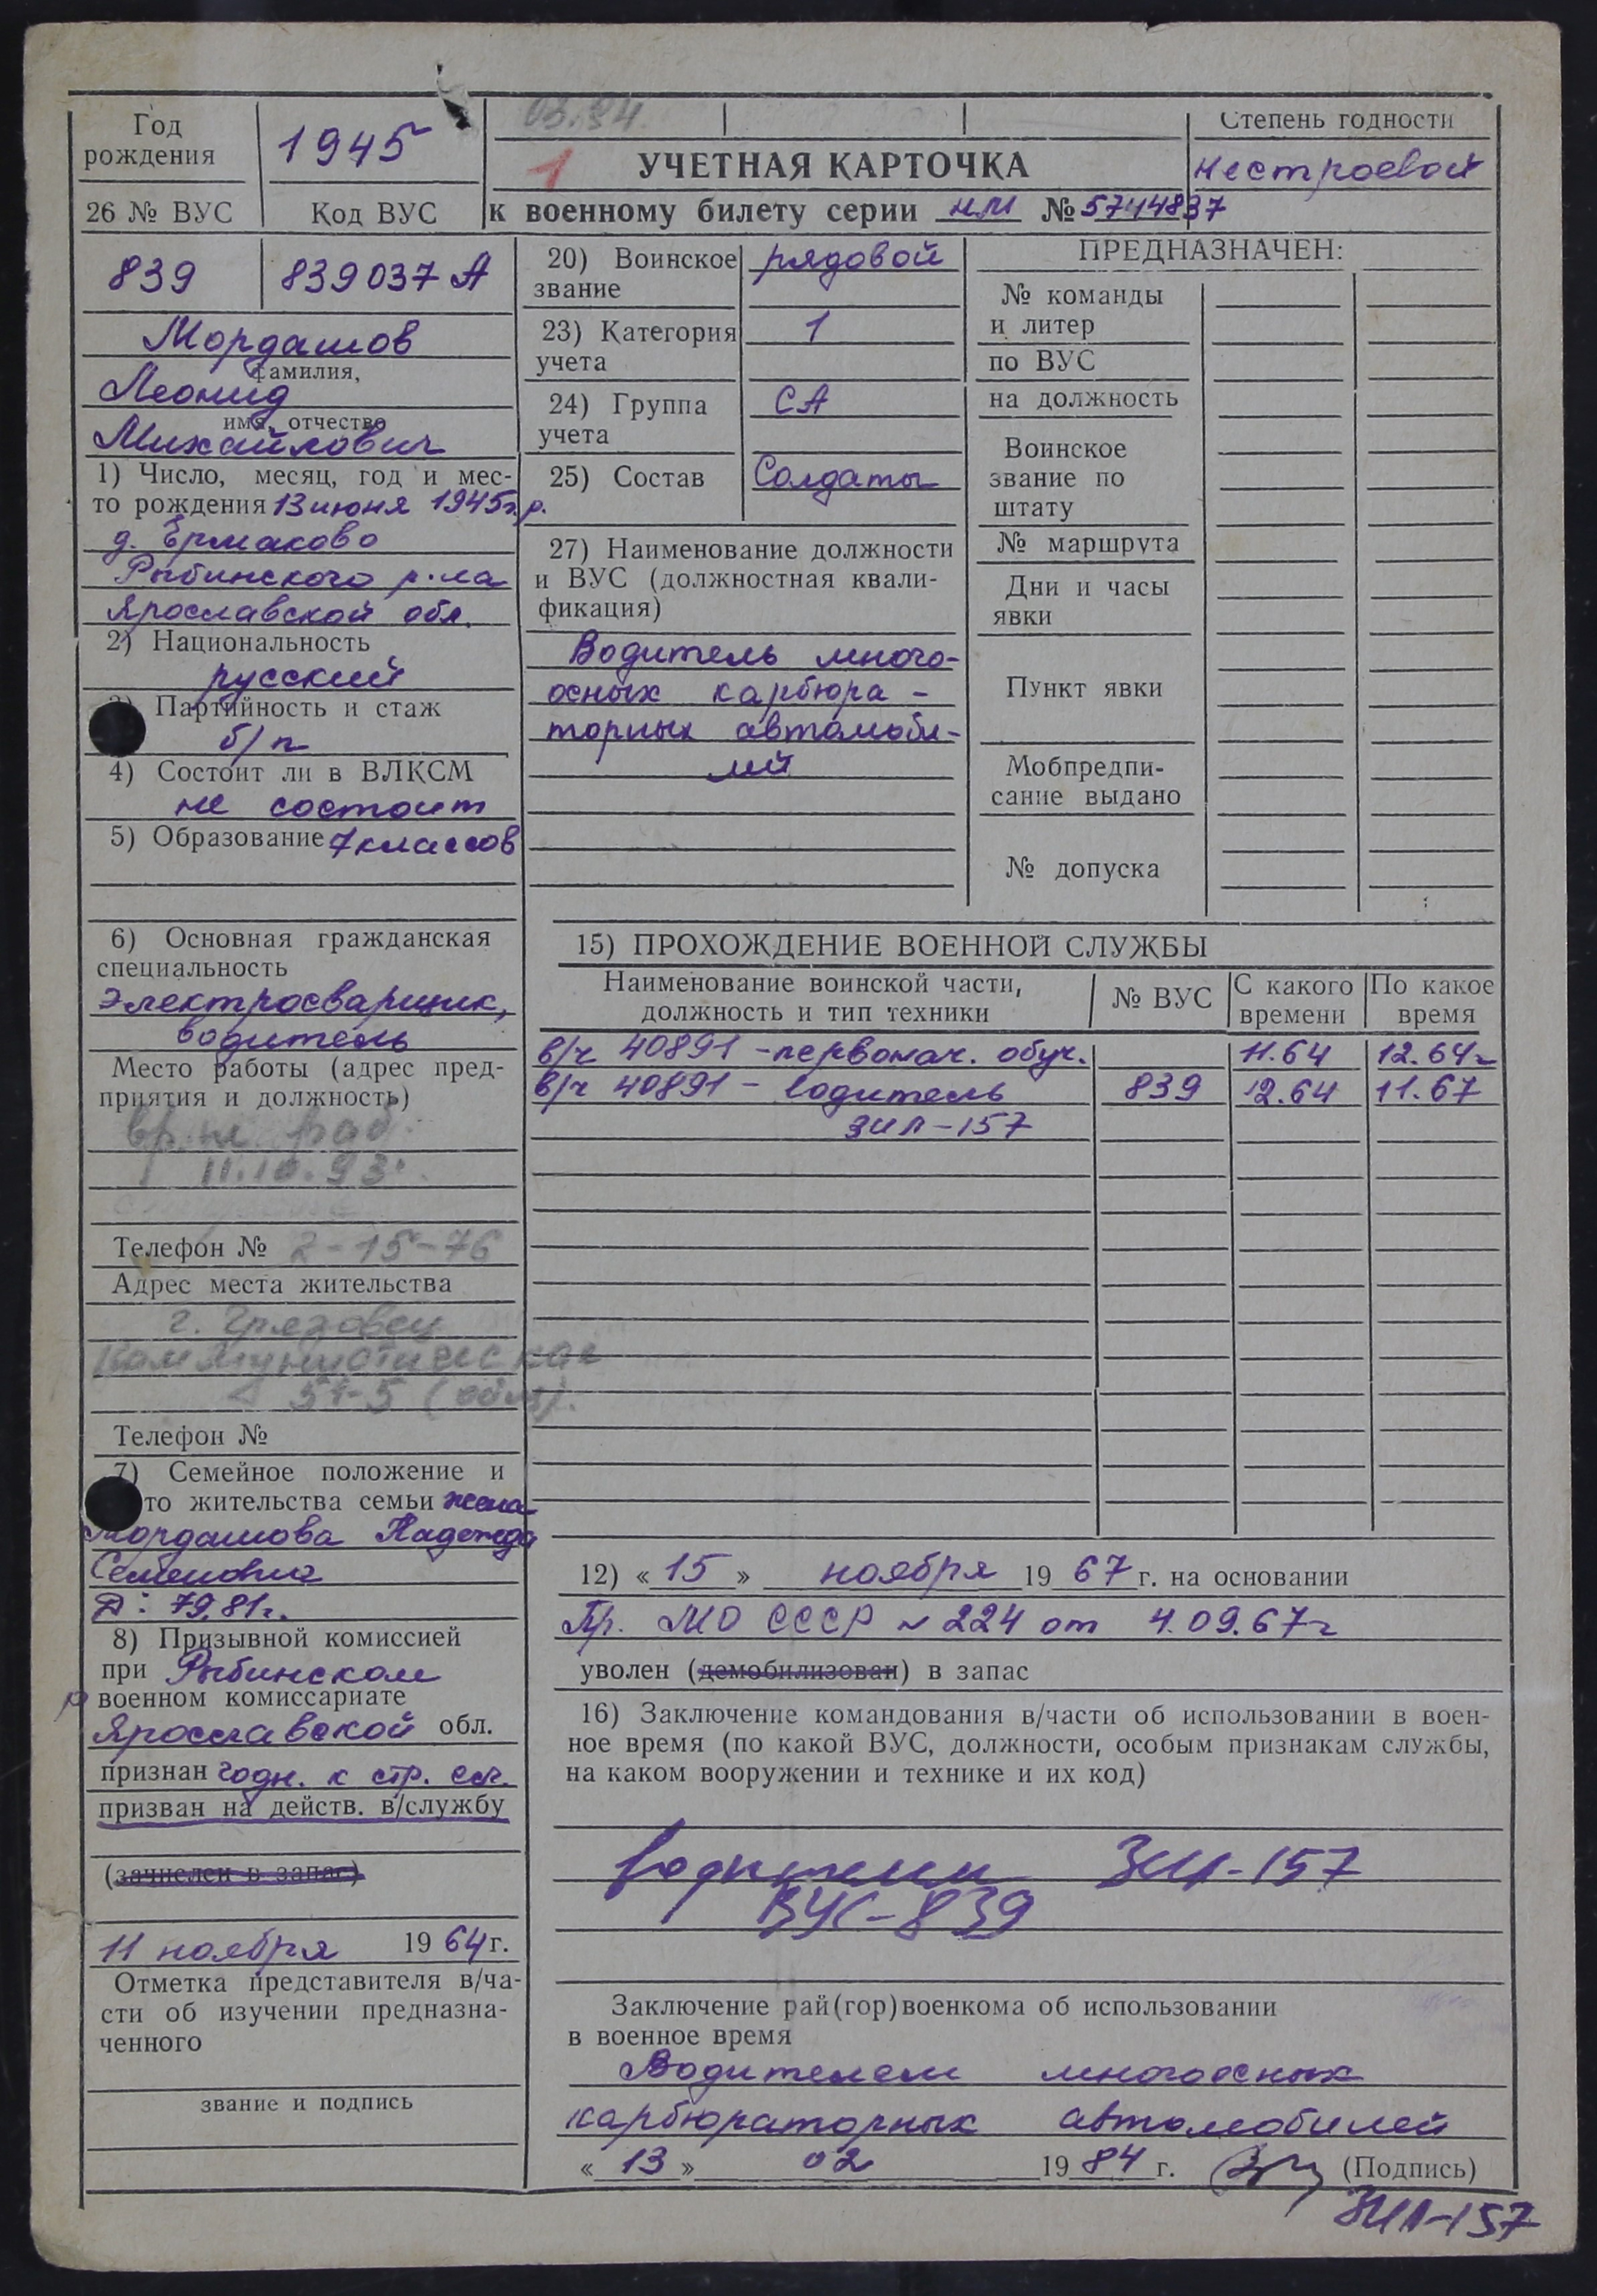 03.94
Год
рождения
1945
26 № ВУС
Код ВУС
1
УЧЕТНАЯ КАРТОЧКА
к военному билету серии НМ № 5744837
Степень годности
нестроевой
839
839037 А
Мордашов
фамилия,
Леонид
имя, отчество
Михайлович
1) Число, месяц, год и мес-
то рождения 13 июня 1945г.р.
д. Ермаково
Рыбинского р-на
Ярославской обл.
2) Национальность
русский
3) Партийность и стаж
б/п
4) Состоит ли в ВЛКСМ
не состоит
5) Образование 7 классов
6) Основная гражданская
специальность
электросварщик,
водитель
Место работы (адрес пред-
приятия и должность)
вр. не раб.
11.10.93г.
Телефон № 2-15-76
Адрес места жительства
г. Грязовец
Коммунистическая
51-5 (общ).
Телефон №
7) Семейное положение и
то жительства семьи жена
Мордашова Надежда
Семеновна
Д: 79, 81г.
8) Призывной комиссией
при Рыбинском
р военном комиссариате
Ярославской обл.
признан годн. к стр. сл.
призван на действ. в/службу
(зачислен в запас)
11 ноября 1964г.
Отметка представителя в/ча-
сти об изучении предназна-
ченного
звание и подпись
20) Воинское
звание
рядовой
23) Категория
учета
1
24) Группа
учета
СА
25) Состав
Солдаты
27) Наименование должности
и ВУС (должностная квали-
фикация)
Водитель много-
осных карбюра-
торных автомоби-
лей
ПРЕДНАЗНАЧЕН:
№ команды
и литер
по ВУС
на должность
Воинское
звание по
штату
№ маршрута
Дни и часы
явки
Пункт явки
Мобпредпи-
сание выдано
№ допуска
15) ПРОХОЖДЕНИЕ ВОЕННОЙ СЛУЖБЫ
Наименование воинской части,
должность и тип техники
№ ВУС
С какого
времени
По какое
время
в/ч 40891 - первонач. обуч. 11.64 12.64г
в/ч 40891 - водитель 839 12.64 11.67
ЗИЛ-157
12) «15» ноября 1967 г. на основании
Пр. МО СССР № 224 от 4.09.67г
уволен (демобилизован) в запас
16) Заключение командования в/части об использовании в воен-
ное время (по какой ВУС, должности, особым признакам службы,
на каком вооружении и технике и их код)
водителем ЗИЛ-157
ВУС-839
Заключение рай(гор)военкома об использовании
в военное время
Водителем многоосных
карбюраторных автомобилей
«13» 02 1984 г. (Подпись)
ЗИЛ-157